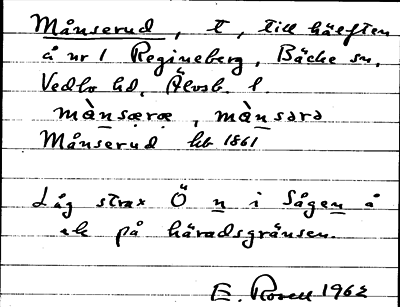 Månserud, t, till hälften
å nr 1 Regineberg, Bäcke sn,
Vedbo hd, Älvsb. l.
mànsæræ, mànsərə
Månserud hb 1861
Låg strax Ö n i Sågen å
ek på häradsgränsen.
E. Rosell 1962